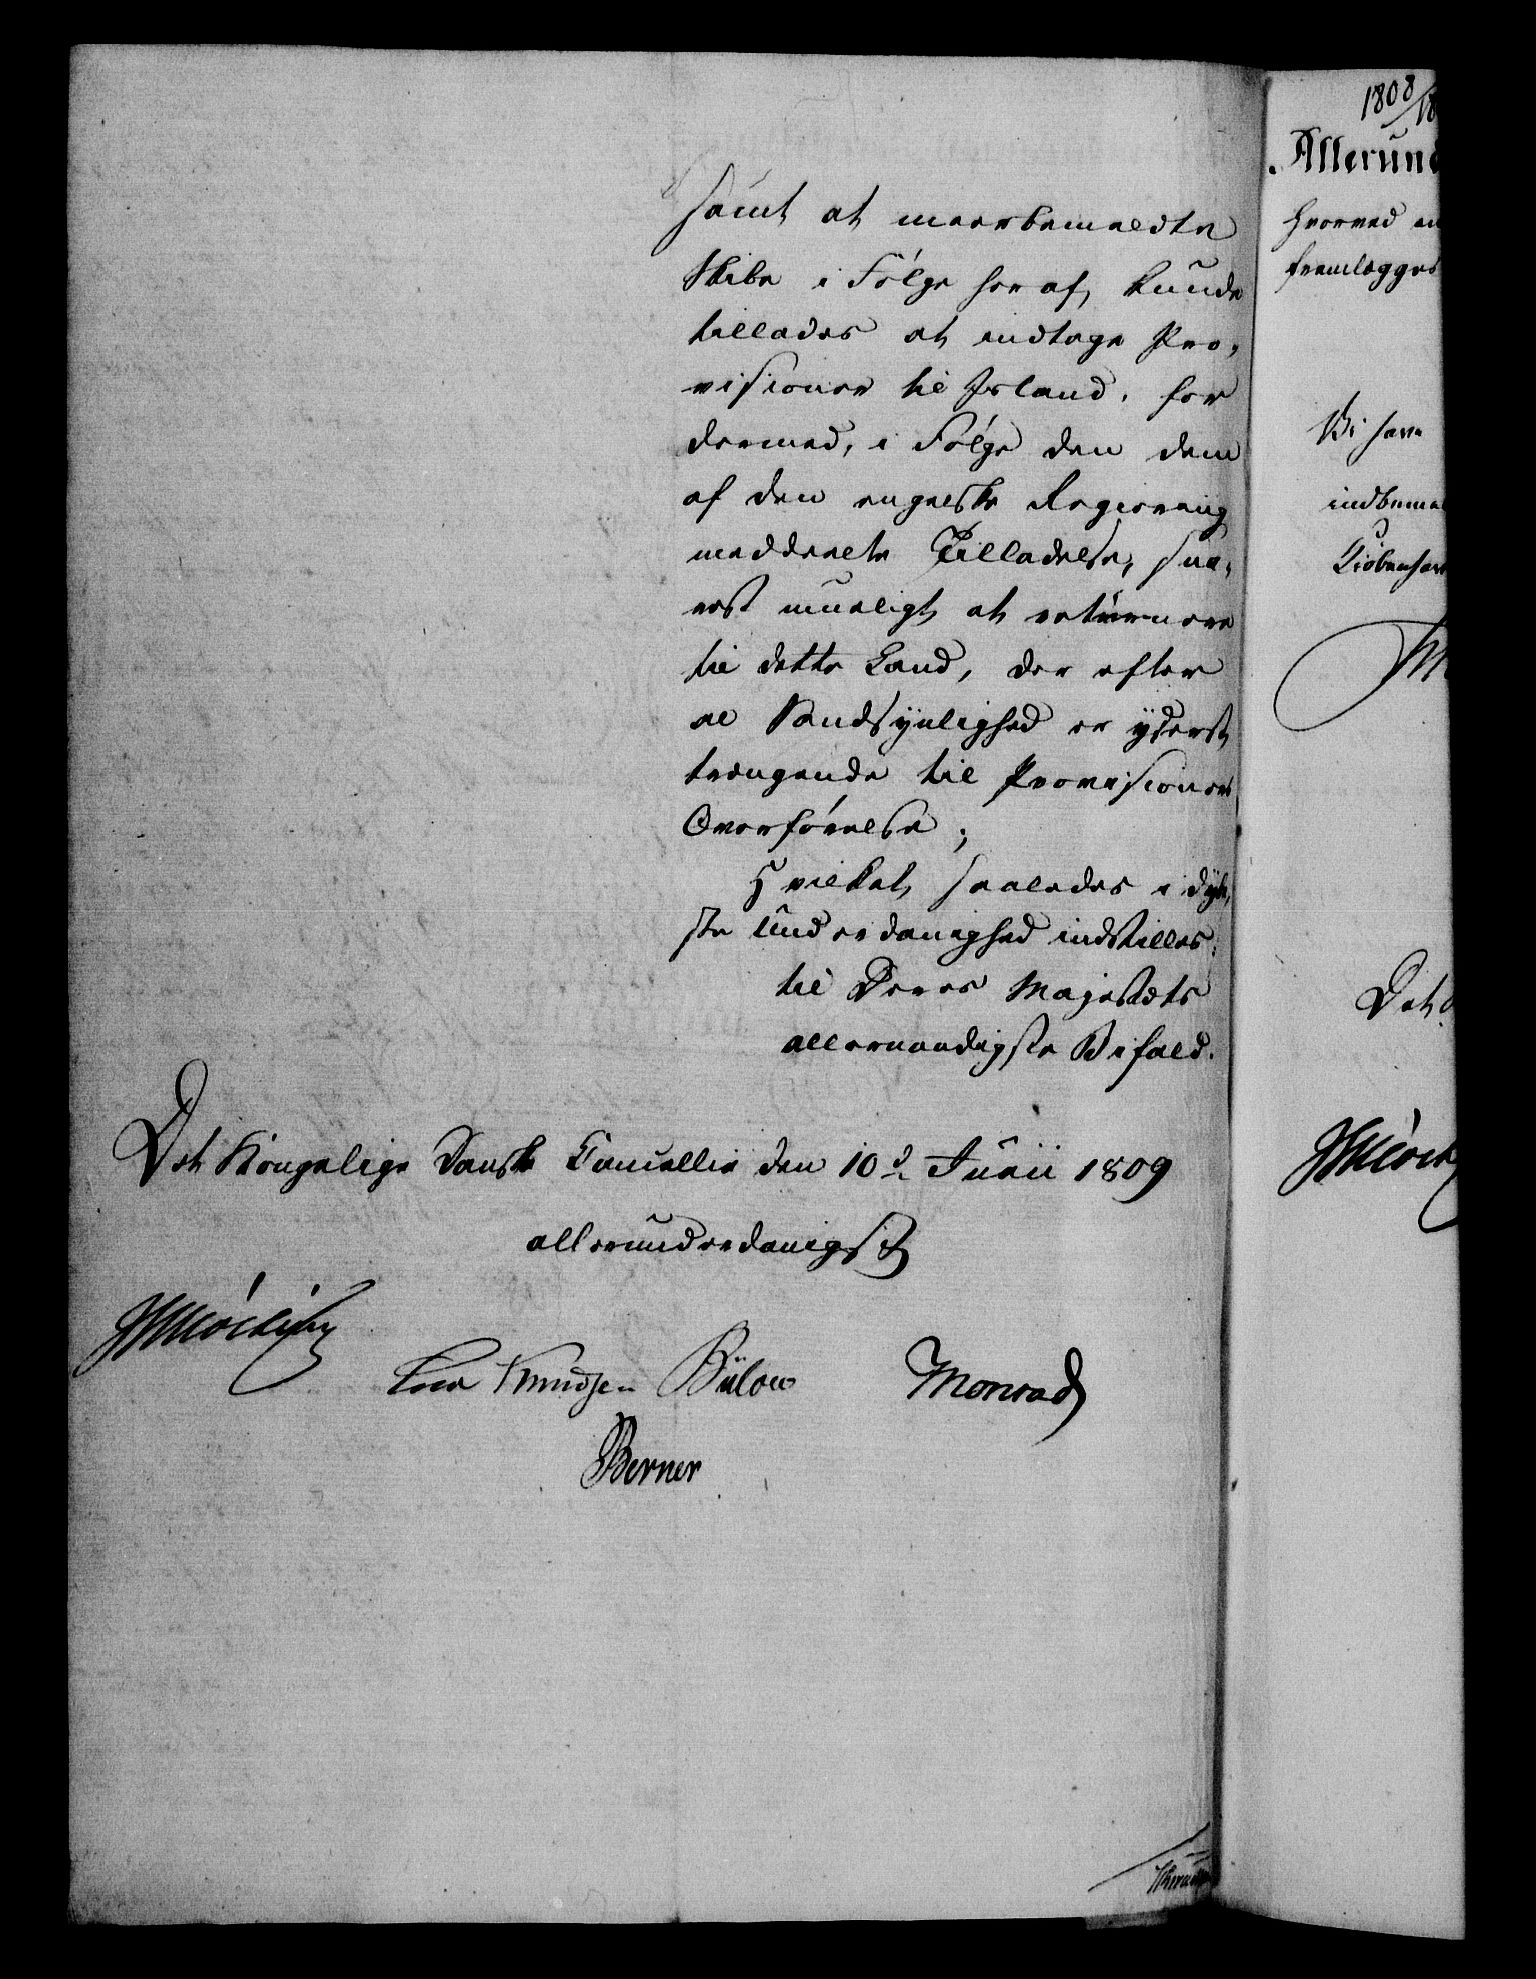 samt at meerbemeldte
Skibe i Følge heraf, kunde
tillades at indtage Pro-
visioner til Island, for
dermed, i Følge den dem
af den engelske Regiering
meddeelte Tilladelse, sna-
rest mueligt at returnere
til dette Land, der efter
al Sandsynlighed er yderst
trængende til Provisioners
Overførelse;
Hvilket saaledes i dyb-
ste Underdanighed indstilles
til Deres Majestæts
allernaadigste Bifald.
Det Kongelige Danske Cancellie den 10d Junii 1809
allerunderdanigst
Knudsen Bülow Monrad
Berner
1808
Allerund
hvorved
fremlægges
Vi have
indbemel
Kiøbenhavn
Det